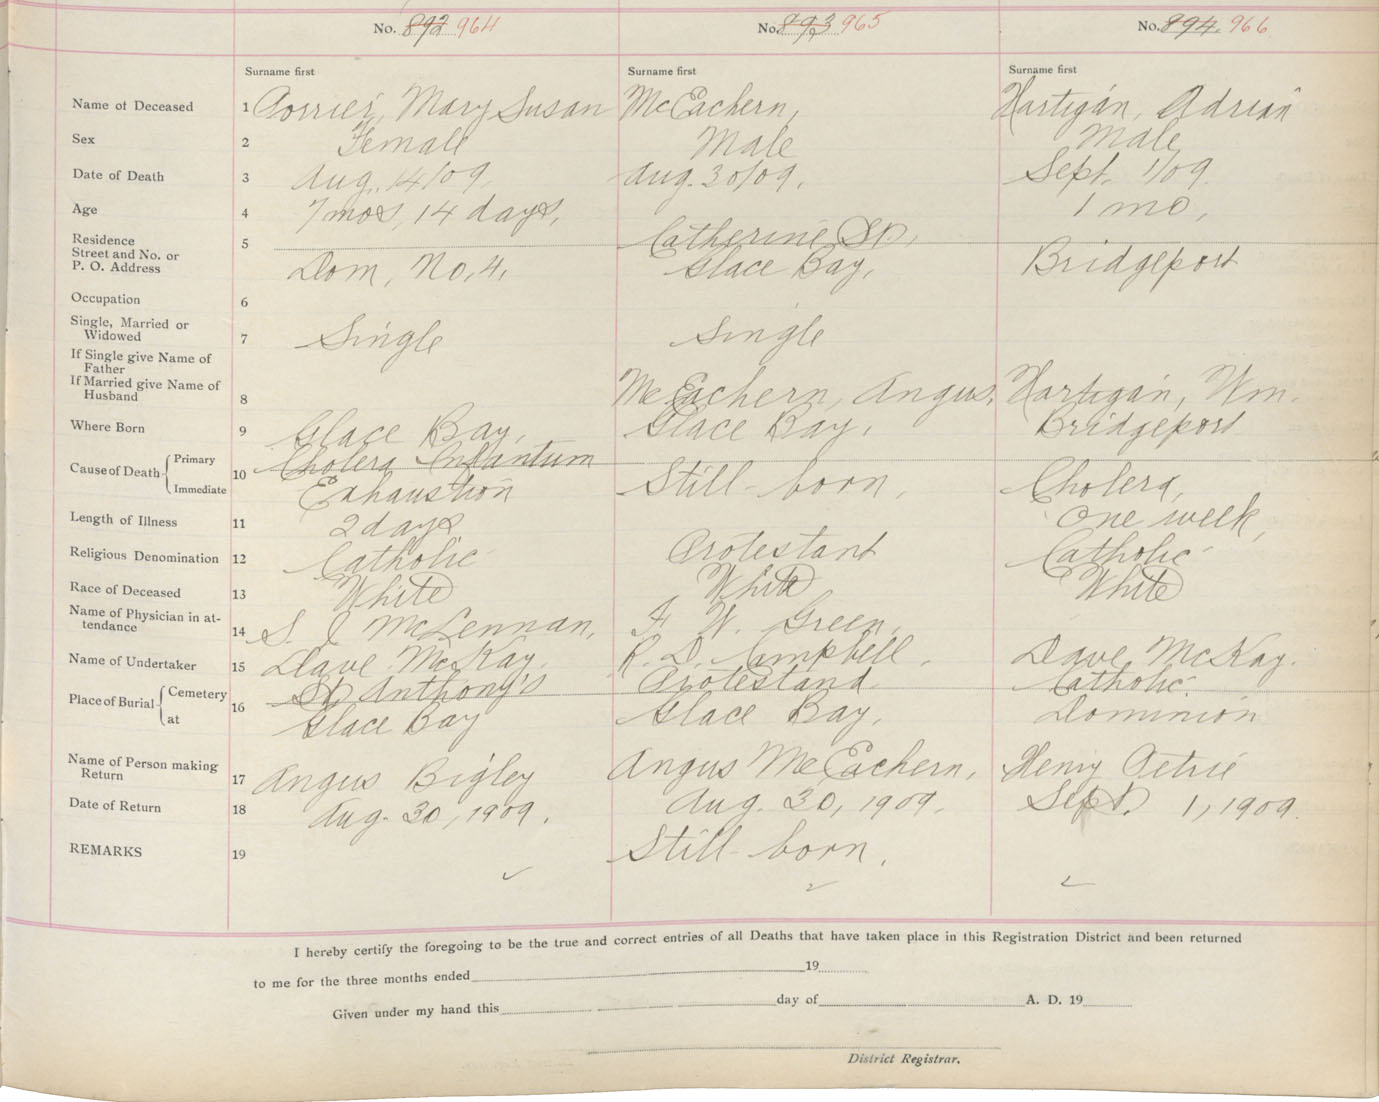 No. 892 964 No. 893 965 No. 894 966
Surname first Surname first Surname first
Name of Deceased 1 Porrier, Mary Susan McEachern, Hartigan, Adrian
Sex 2 Female Male Male
Date of Death 3 Aug. 14/09, Aug. 30/09, Sept. 1/09.
Age 4 7 mos, 14 days, 1 mo,
Residence 5 Catherine St,
Street and No. or
P. O. Address Dom, No, 4, Glace Bay, Bridgeport
Occupation 6
Single, Married or
Widowed 7 Single Single
If Single give Name of
Father
If Married give Name of
Husband 8 McEachern, Angus, Hartigan, Wm.
Where Born 9 Glace Bay, Glace Bay, Bridgeport
Cause of Death Primary Cholera Infantum
10 Still-born, Cholera,
Immediate Exhaustion
Length of Illness 11 2 days One week,
Religious Denomination 12 Catholic Protestant Catholic
Race of Deceased 13 White White White
Name of Physician in at-
tendance 14 S. J McLennan, F. W. Green,
Name of Undertaker 15 Dave McKay. R. D. Campbell. Dave McKay.
Place of Burial Cemetery St Anthony's Protestand Catholic.
at 16 Glace Bay Glace Bay, Dominion
Name of Person making
Return 17 Angus Bigley Angus McEachern, Henry Petrie
Date of Return 18 Aug. 30, 1909. Aug. 30, 1909. Sept. 1, 1909.
REMARKS 19 Still-born,
I hereby certify the foregoing to be the true and correct entries of all Deaths that have taken place in this Registration District and been returned
to me for the three months ended 19
Given under my hand this day of A. D. 19
District Registrar.